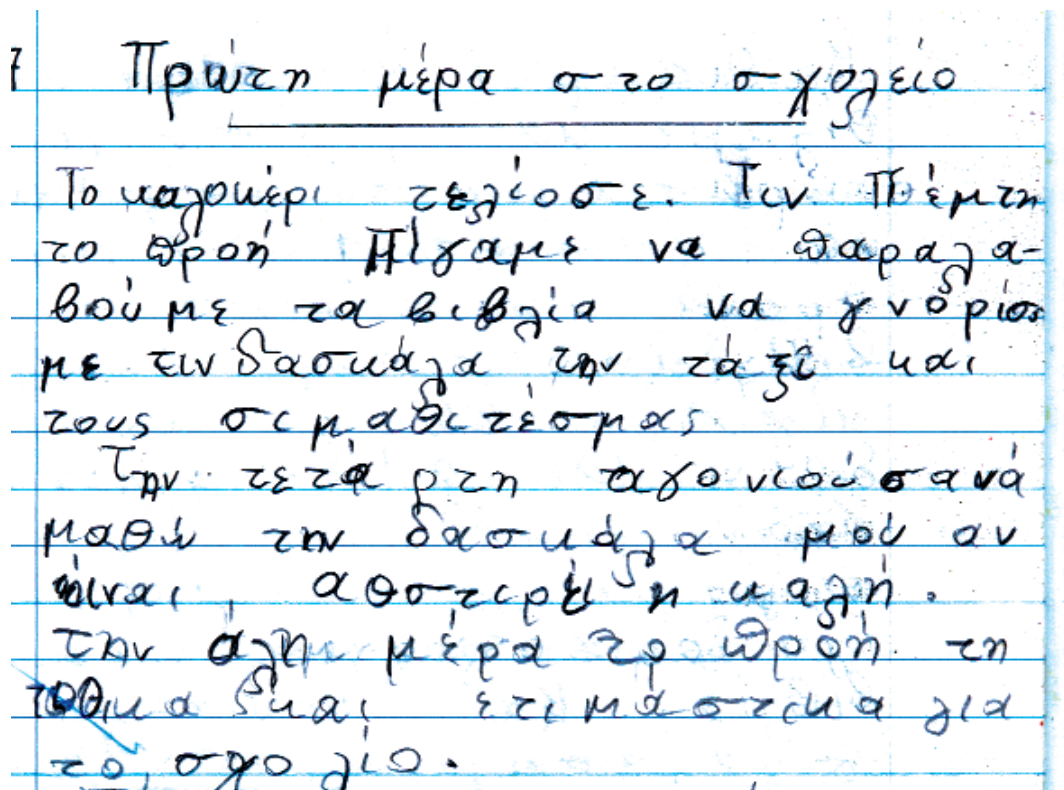 Πρώτη μέρα στο σχολείο
Το καλοκέρι τελίοσε. Τιν Πέμτη
το προή Πίγαμε να παραλα-
βούμε τα βιβλία να γνορίσο
με τιν δασκάλα την τάξι και
τους σιμαθιτέσμας
Την τετάρτη αγονιούσανά
μαθώ την δασκάλα μού αν
είναι αθστιρή η καλή.
την άλη μέρα το προή τη
και ετιμάστικα για
το σχολίο.